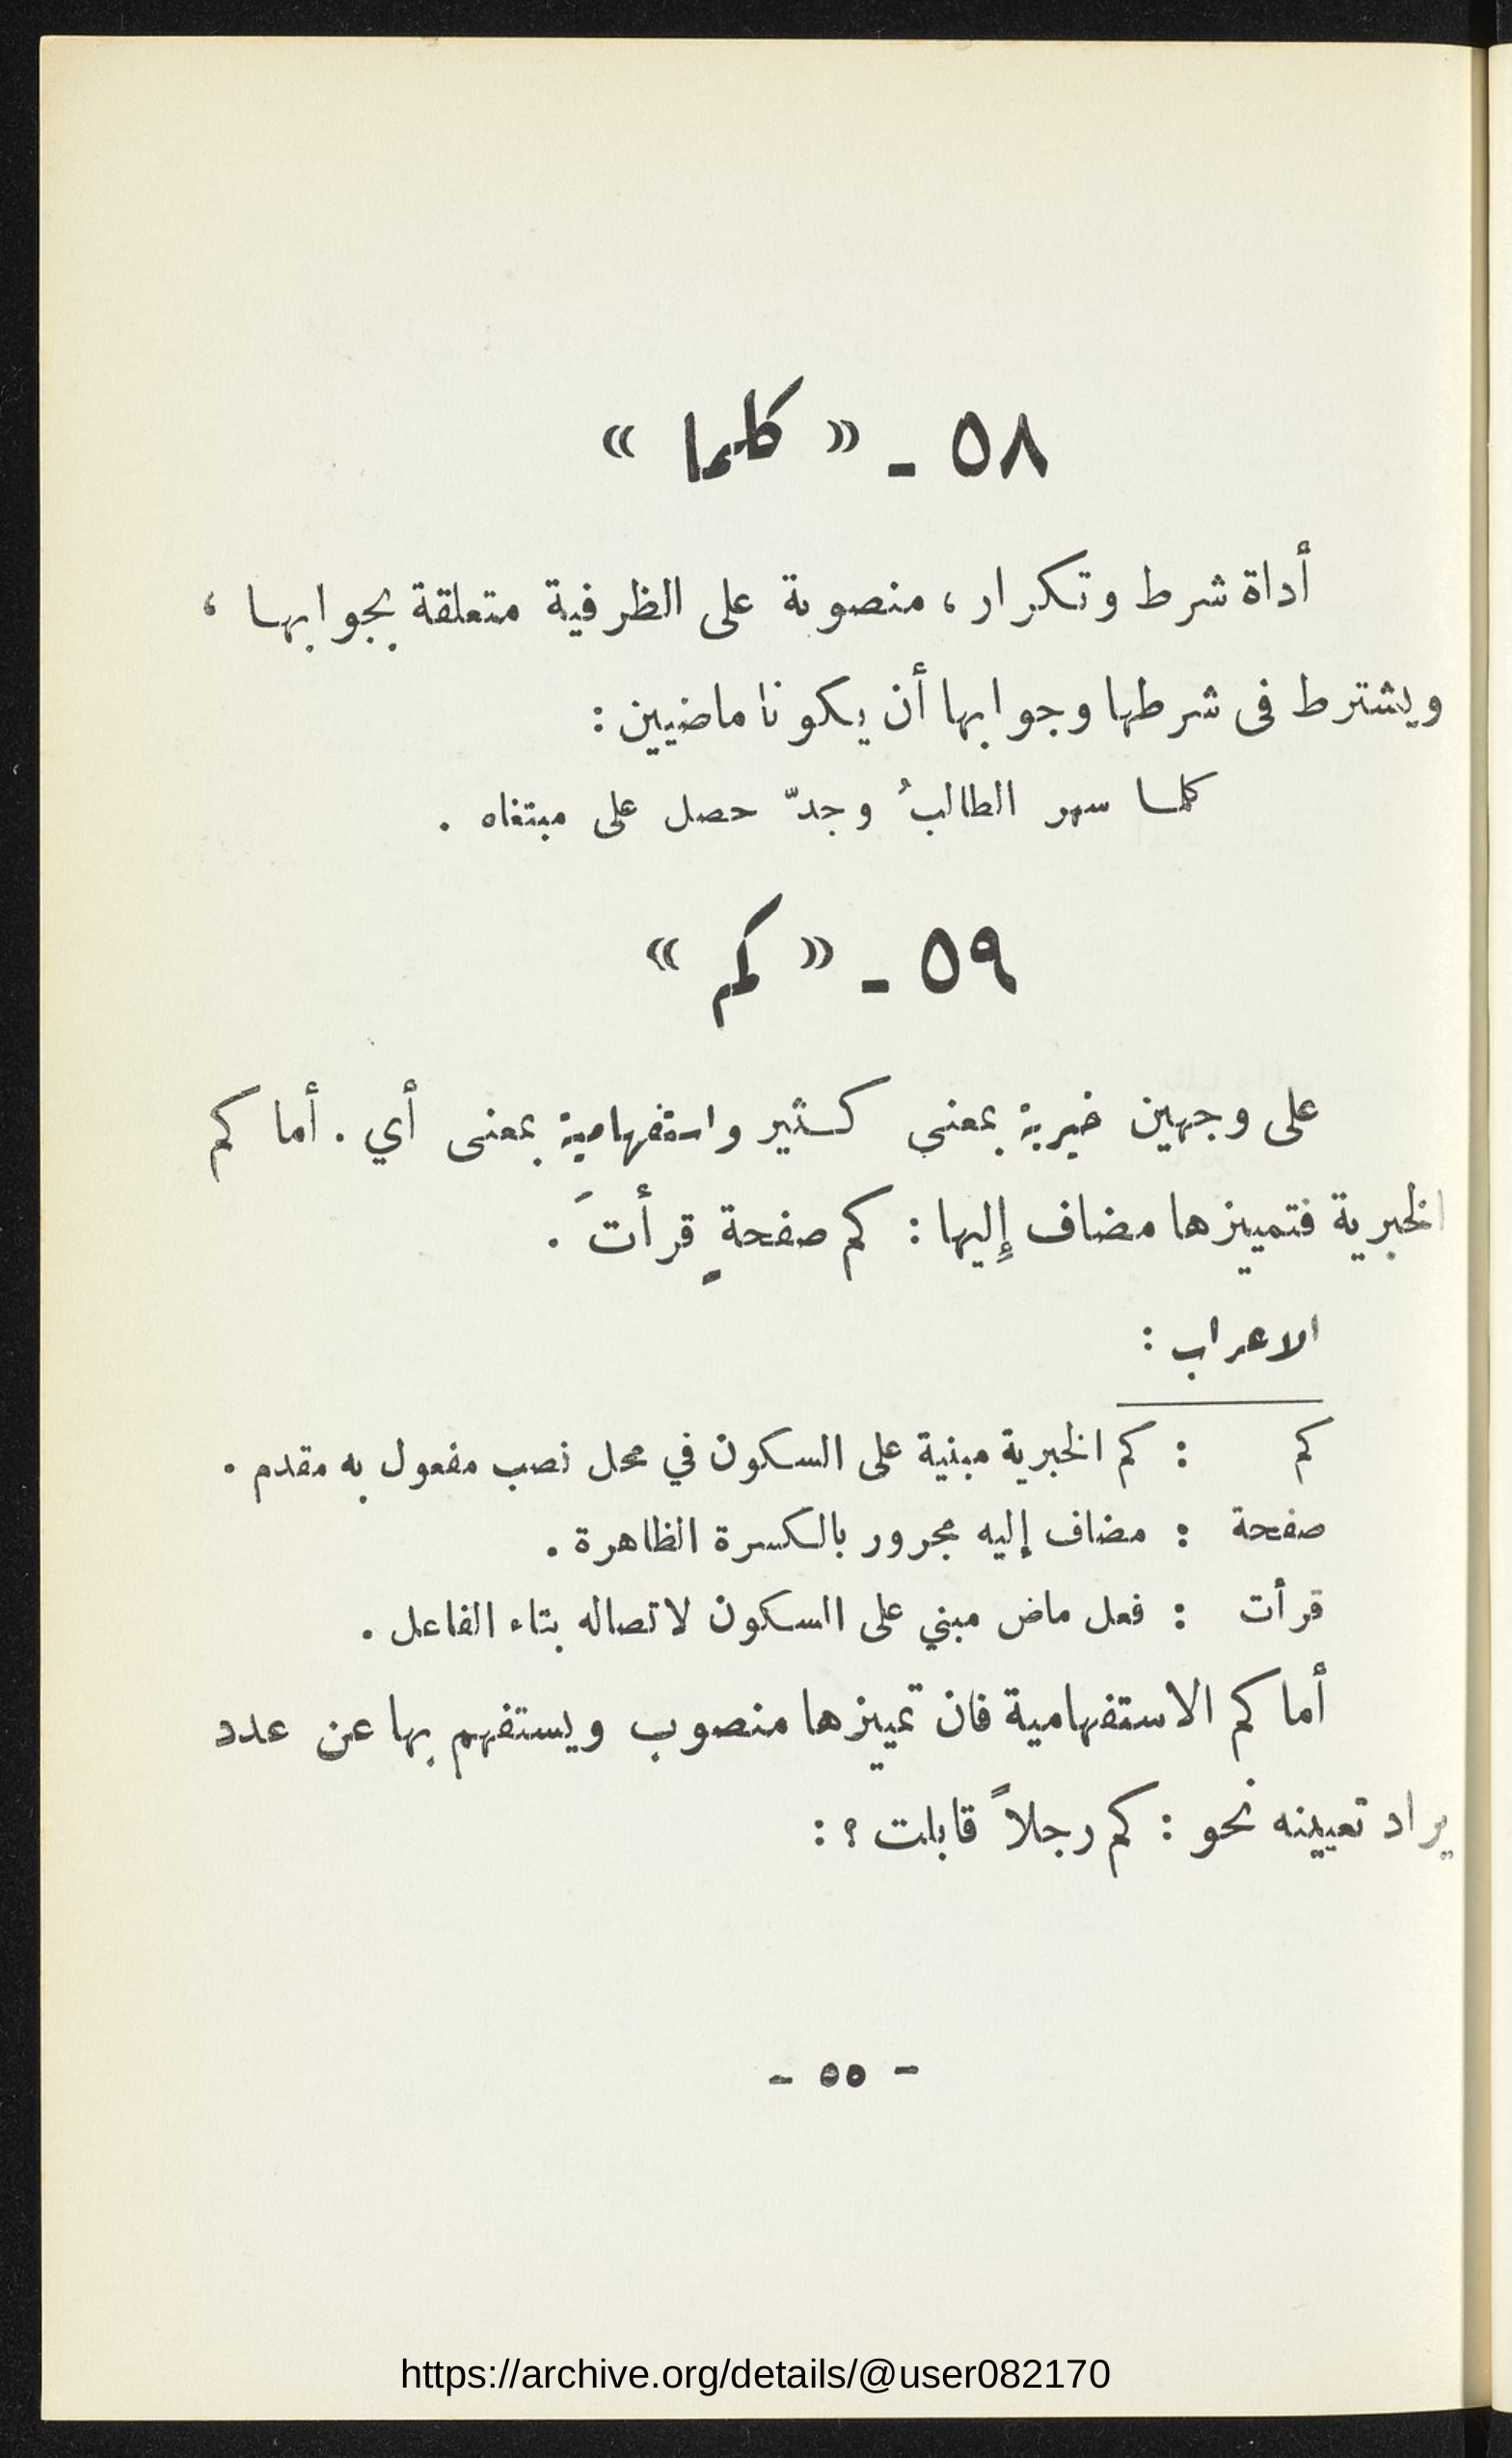 ٥٨ ـ « كلما »
أداة شرط وتكرار ، منصوبة على الظرفية متعلقة بجوابها ،
ويشترط فى شرطها وجوابها أن يكونا ماضيين :
كلما سهر الطالبُ وجدّ حصل على مبتغاه .
٥٩ ـ « كم »
على وجهين خبرية بمعنى كثير واستفهامية بمعنى أي . أما كم
الخبرية فتمييزها مضاف إليها : كم صفحةٍ قرأتَ .
الاعراب :
كم : كم الخبرية مبنية على السكون في محل نصب مفعول به مقدم .
صفحة : مضاف إليه مجرور بالكسرة الظاهرة .
قرأت : فعل ماض مبني على السكون لاتصاله بتاء الفاعل .
أما كم الاستفهامية فان تمييزها منصوب ويستفهم بها عن عدد
يراد تعيينه نحو : كم رجلاً قابلت ؟ :
- ٥٥ -
https://archive.org/details/@user082170